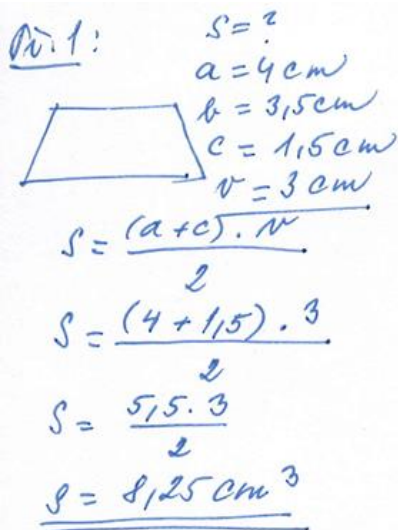 Př. 1:
S = ?
a = 4 cm
b = 3,5 cm
c = 1,5 cm
v = 3 cm
S = (a + c) . v / 2
S = (4 + 1,5) . 3 / 2
S = 5,5 . 3 / 2
S = 8,25 cm³